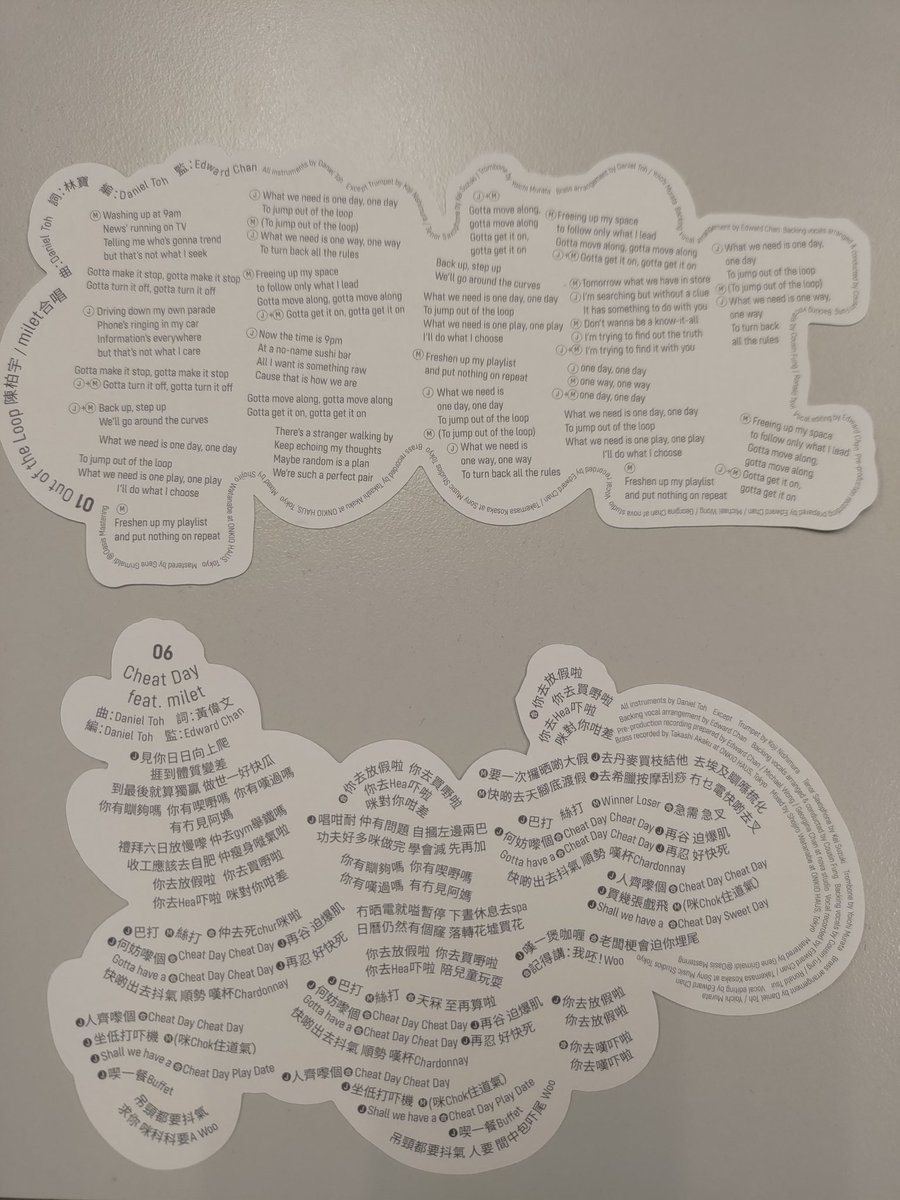 01 Out of the Loop 陳柏宇 / milet合唱
曲：Daniel Toh 詞：林寶 編：Daniel Toh 監：Edward Chan
Ⓜ Washing up at 9am
News' running on TV
Telling me who's gonna trend
but that's not what I seek
Gotta make it stop, gotta make it stop
Gotta turn it off, gotta turn it off
Ⓙ Driving down my own parade
Phone's ringing in my car
Information's everywhere
but that's not what I care
Gotta make it stop, gotta make it stop
Ⓙ+Ⓜ Gotta turn it off, gotta turn it off
Ⓙ+Ⓜ Back up, step up
We'll go around the curves
What we need is one day, one day
To jump out of the loop
What we need is one play, one play
I'll do what I choose
Ⓜ
Freshen up my playlist
and put nothing on repeat
Ⓙ What we need is one day, one day
To jump out of the loop
Ⓜ (To jump out of the loop)
Ⓙ What we need is one way, one way
To turn back all the rules
Ⓜ Freeing up my space
to follow only what I lead
Gotta move along, gotta move along
Ⓙ+Ⓜ Gotta get it on, gotta get it on
Ⓙ Now the time is 9pm
At a no-name sushi bar
All I want is something raw
Cause that is how we are
Gotta move along, gotta move along
Gotta get it on, gotta get it on
There's a stranger walking by
Keep echoing my thoughts
Maybe random is a plan
We're such a perfect pair
Ⓙ+Ⓜ
Gotta move along,
gotta move along
Gotta get it on,
gotta get it on
Back up, step up
We'll go around the curves
What we need is one day, one day
To jump out of the loop
What we need is one play, one play
I'll do what I choose
Ⓜ Freshen up my playlist
and put nothing on repeat
Ⓙ What we need is
one day, one day
To jump out of the loop
Ⓜ (To jump out of the loop)
Ⓙ What we need is
one way, one way
To turn back all the rules
Ⓜ Freeing up my space
to follow only what I lead
Gotta move along, gotta move along
Ⓙ+Ⓜ Gotta get it on, gotta get it on
Ⓜ Tomorrow what we have in store
Ⓙ I'm searching but without a clue
It has something to do with you
Ⓜ Don't wanna be a know-it-all
Ⓙ I'm trying to find out the truth
Ⓙ+Ⓜ I'm trying to find it with you
Ⓙ one day, one day
Ⓜ one way, one way
Ⓙ+Ⓜ one day, one day
What we need is one day, one day
To jump out of the loop
What we need is one play, one play
I'll do what I choose
Ⓜ
Freshen up my playlist
and put nothing on repeat
Ⓙ What we need is one day,
one day
To jump out of the loop
Ⓜ (To jump out of the loop)
Ⓙ What we need is one way,
one way
To turn back
all the rules
Ⓜ Freeing up my space
to follow only what I lead
Gotta move along,
gotta move along
Ⓙ+Ⓜ Gotta get it on,
gotta get it on
All instruments by Daniel Toh Except Trumpet by Koji Nishimura / Tenor Saxophone by Kei Suzuki / Trombone by Yoichi Murata Brass arrangement by Daniel Toh / Yoichi Murata Backing vocal arrangement by Edward Chan Backing vocals arranged & conducted by
Vocal editing by Edward Chan Pre-production recording prepared by Edward Chan / Michael Wong / Georgina Chan at nova studio
Vocal recorded by Edward Chan / Takemasa Kosaka at Sony Music Studios Tokyo
Brass recorded by Takashi Akaku at ONKIO HAUS, Tokyo Mixed by Shojiro Watanabe at ONKIO HAUS, Tokyo
Mastered by Gene Grimaldi @Oasis Mastering
06
Cheat Day
feat. milet
曲：Daniel Toh 詞：黃偉文
編：Daniel Toh 監：Edward Chan
Ⓙ見你日日向上爬
捱到體質變差
到最後就算獨贏 做世一好快瓜
你有瞓夠嗎 你有喫嘢嗎 你有嘆過嗎
有冇見阿媽
禮拜六日放慢嚟 仲去gym學鐵嗎
收工應該去自肥 仲瘦身嘥氣啦
你去放假啦 你去買嘢啦
你去Hea吓啦 咪對你咁差
Ⓙ巴打 Ⓜ絲打 仲去死chur咪啦
Ⓙ何妨嚟個 Cheat Day Cheat Day Ⓙ再谷 迫爆肌
Gotta have a Cheat Day Cheat Day Ⓙ再忍 好快死
快啲出去抖氣 順勢 嘆杯Chardonnay
Ⓙ人齊嚟個 Cheat Day Cheat Day
Ⓙ坐低打吓機 Ⓜ(咪Chok住道氣)
Ⓙ Shall we have a Cheat Day Play Date
Ⓙ喫一餐Buffet
吊頸都要抖氣
求你 咪科科要A Woo
你去放假啦 你去買嘢啦
你去Hea吓啦
咪對你咁差
Ⓙ唱咀耐 仲有問題 自摑左邊兩巴
功夫好多咪做完 學會減 先再加
你有瞓夠嗎 你有喫嘢嗎
你有嘆過嗎 有冇見阿媽
冇晒電就嗌暫停 下晝休息去spa
日曆仍然有個窿 落轉花墟買花
你去放假啦 你去買嘢啦
你去Hea吓啦 陪兒童玩耍
Ⓙ巴打 Ⓜ絲打 天冧 至再算啦
Ⓙ何妨嚟個 Cheat Day Cheat Day Ⓙ再谷 迫爆肌
Gotta have a Cheat Day Cheat Day Ⓙ再忍 好快死
快啲出去抖氣 順勢 嘆杯Chardonnay
Ⓙ人齊嚟個 Cheat Day Cheat Day
Ⓙ坐低打吓機 Ⓜ(咪Chok住道氣)
Ⓙ Shall we have a Cheat Day Play Date
Ⓙ喫一餐Buffet
吊頸都要抖氣 人要 間中包吓尾 Woo
你去放假啦
你去買嘢啦
你去Hea吓啦
咪對你咁差
Ⓜ要一次攞晒啲大假 Ⓙ去丹麥買枝結他 去埃及瞓喺梳化
Ⓜ快啲去天腳底渡假 Ⓙ去希臘按摩刮痧 冇乜電快啲去叉
Ⓙ巴打 絲打 Ⓜ Winner Loser 急需 急叉
Ⓙ何妨嚟個 Cheat Day Cheat Day Ⓙ再谷 迫爆肌
Gotta have a Cheat Day Cheat Day Ⓙ再忍 好快死
快啲出去抖氣 順勢 嘆杯Chardonnay
Ⓙ人齊嚟個 Cheat Day Cheat Day
Ⓙ買幾張戲飛 Ⓜ(咪Chok住道氣)
Ⓙ Shall we have a Cheat Day Sweet Day
Ⓙ嘆一煲咖喱 老闆梗會迫你埋尾
記得講：我呸！Woo
Ⓙ你去放假啦
你去放假啦
你去嘆吓啦
你去嘆吓啦
All instruments by Daniel Toh Except Trumpet by Koji Nishimura Tenor Saxophone by Kei Suzuki Trombone by Yoichi Murata Brass arrangement by Daniel Toh / Yoichi Murata
Backing vocal arrangement by Edward Chan Backing vocals arranged & conducted by
Pre-production recording prepared by Edward Chan / Michael Wong / Georgina Chan at nova studio
Brass recorded by Takashi Akaku at ONKIO HAUS, Tokyo Mixed by Shojiro Watanabe at ONKIO HAUS, Tokyo
Mastered by Gene Grimaldi @Oasis Mastering